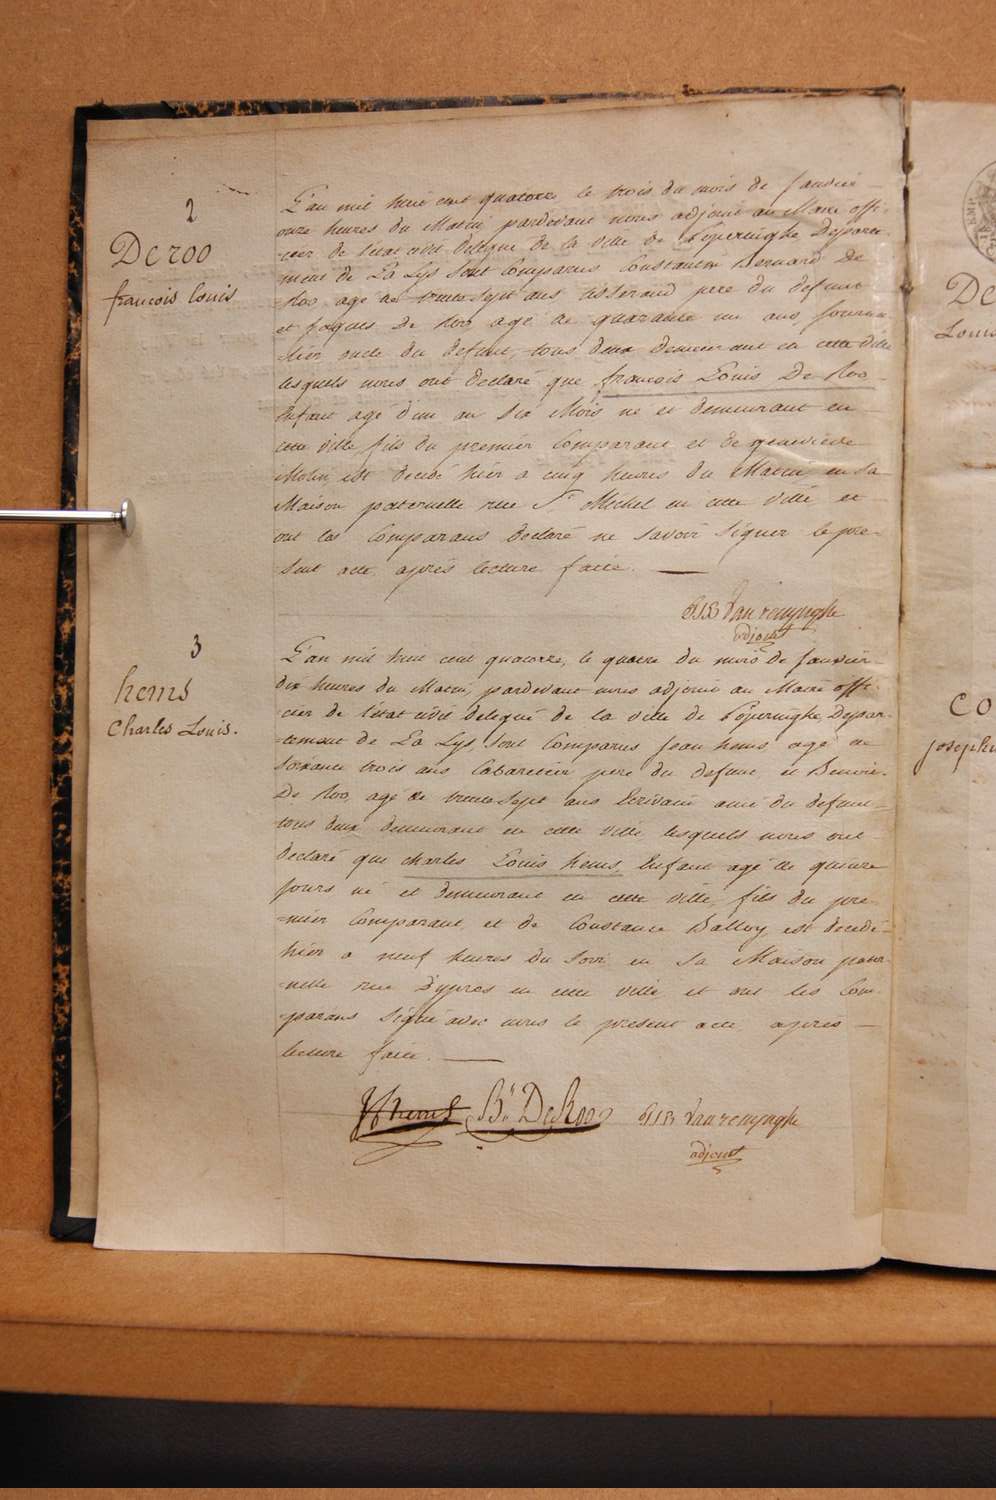 2
De roo
françois louis
L'an mil huit cent quatorze le trois du mois de Janvier
onze heures du Matin, pardevant nous adjoint au Maire offi-
-cier de l'état civil délégué de la ville de Poperinghe Departe-
ment de La Lys sont Comparus Constantin Bernard De
Roo agé de trente sept ans pere du defunt
et Jaques De Roo agé de quarante un ans, Journa-
-lier oncle du defunt, tous deux demeurant en cette ville
lesquels nous ont declaré que françois Louis De Roo
Enfant agé d'un an six Mois né et demeurant en
cette ville fils du premier Comparant et de genevieve
Molin, est decedé hier a cinq heures du Matin en sa
Maison paternelle rue St. Michel en cette ville et
ont les Comparans declaré ne savoir signer le pre-
-sent acte après lecture faite.
PJB Vanrenynghe
adjoint
3
hems
Charles Louis.
L'an mil huit cent quatorze, le quatre du mois de Janvier
dix heures du Matin, pardevant nous adjoint au Maire offi-
cier de l'état civil delegué de la ville de Poperinghe, Depar-
-tement de La Lys, sont Comparus Jean hems agé de
soixante trois ans Cabaretier pere du defunt, et Benoit
De Roo, agé de trente sept ans Ecrivain ami du defunt
tous deux demeurant en cette ville lesquels nous ont
declaré que charles Louis hems, Enfant agé de quinze
jours né et demeurant en cette ville, fils du pre-
-mier Comparant, et de Constance Balloy est decedé
hier a neuf heures du soir en sa Maison pater-
-nelle rue d'ypres en cette ville et ont les Com-
-parans signé avec nous le present acte après
lecture faite.
hems Bt. De Roo PJB Vanrenynghe
adjoint
De
Louis
Co
josephi